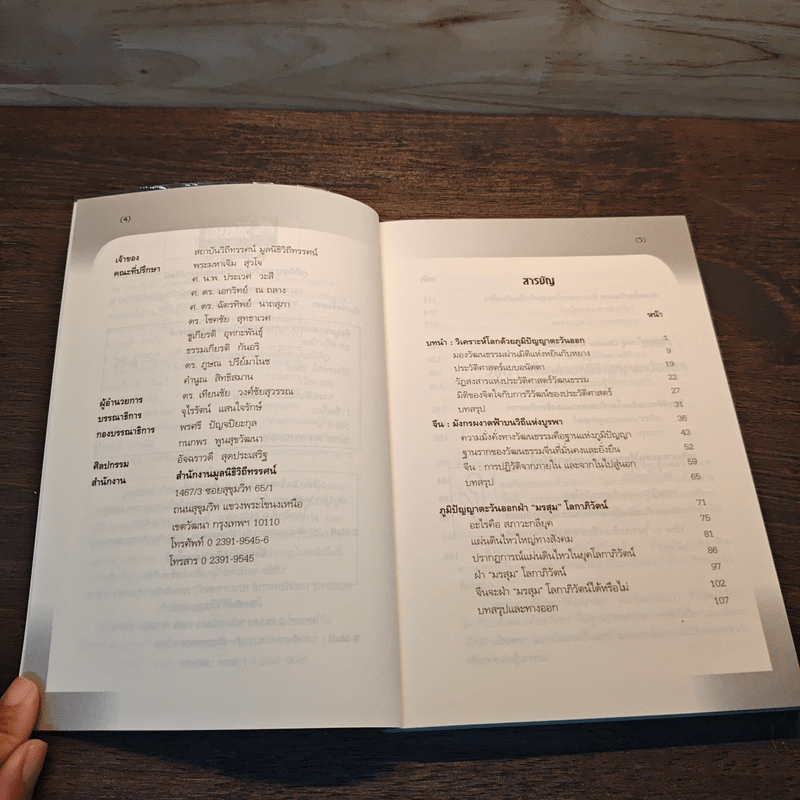 (4)
เจ้าของ สถาบันวิถีทรรศน์ มูลนิธิวิถีทรรศน์
คณะที่ปรึกษา พระมหาเจิม สุวโจ
ศ. น.พ. ประเวศ วะสี
ศ. ดร. เอกวิทย์ ณ ถลาง
ศ. ดร. ฉัตรทิพย์ นาถสุภา
ดร. โชคชัย สุทธาเวศ
ชูเกียรติ อุทกะพันธุ์
ธรรมเกียรติ กันอริ
ดร. ภูษณ ปรีย์มาโนช
คำนูณ สิทธิสมาน
ผู้อำนวยการ ดร. เทียนชัย วงศ์ชัยสุวรรณ
บรรณาธิการ จุไรรัตน์ แสนใจรักษ์
กองบรรณาธิการ พรศรี ปัญจปิยะกุล
กนกพร พูนสุขวัฒนา
ศิลปกรรม อัจฉราวดี สุดประเสริฐ
สำนักงาน สำนักงานมูลนิธิวิถีทรรศน์
1467/3 ซอยสุขุมวิท 65/1
ถนนสุขุมวิท แขวงพระโขนงเหนือ
เขตวัฒนา กรุงเทพฯ 10110
โทรศัพท์ 0 2391-9545-6
โทรสาร 0 2391-9545
(5)
สารบัญ
หน้า
บทนำ : วิเคราะห์โลกด้วยภูมิปัญญาตะวันออก 1
มองวัฒนธรรมผ่านมิติแห่งหยินกับหยาง 9
ประวัติศาสตร์แบบอนัตตา 19
วัฏสงสารแห่งประวัติศาสตร์วัฒนธรรม 22
มิติของจิตใจกับการวิวัฒน์ของประวัติศาสตร์ 27
บทสรุป 31
จีน : มังกรผงาดฟ้าบนวิถีแห่งบูรพา 36
ความมั่งคั่งทางวัฒนธรรมคือฐานแห่งภูมิปัญญา 43
ฐานรากของวัฒนธรรมจีนที่มั่นคงและยั่งยืน 52
จีน : การปฏิวัติจากภายใน และจากในไปสู่นอก 59
บทสรุป 65
ภูมิปัญญาตะวันออกฝ่า “มรสุม” โลกาภิวัตน์ 71
อะไรคือ สภาวะกลียุค 75
แผ่นดินไหวใหญ่ทางสังคม 81
ปรากฏการณ์แผ่นดินไหวในยุคโลกาภิวัตน์ 86
ฝ่า “มรสุม” โลกาภิวัตน์ 97
จีนจะฝ่า “มรสุม” โลกาภิวัตน์ได้หรือไม่ 102
บทสรุปและทางออก 107